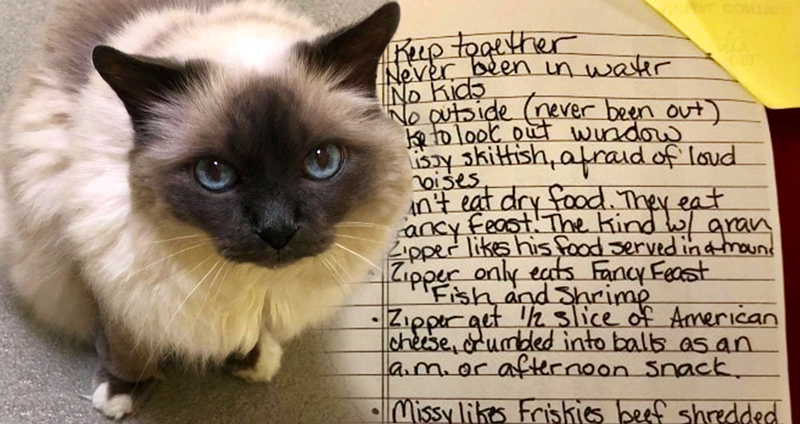 Keep together
Never been in water
No kids
No outside (never been out)
to look out window
skittish, afraid of loud
eat dry food. They eat
Feast. The kind w/ grav
Zipper likes his food served in a mound
Zipper only eats Fancy Feast
Fish and Shrimp
• Zipper get 1/2 slice of American
cheese, crumbled into balls as an
a.m. or afternoon snack.
• Missy likes Friskies beef shredded